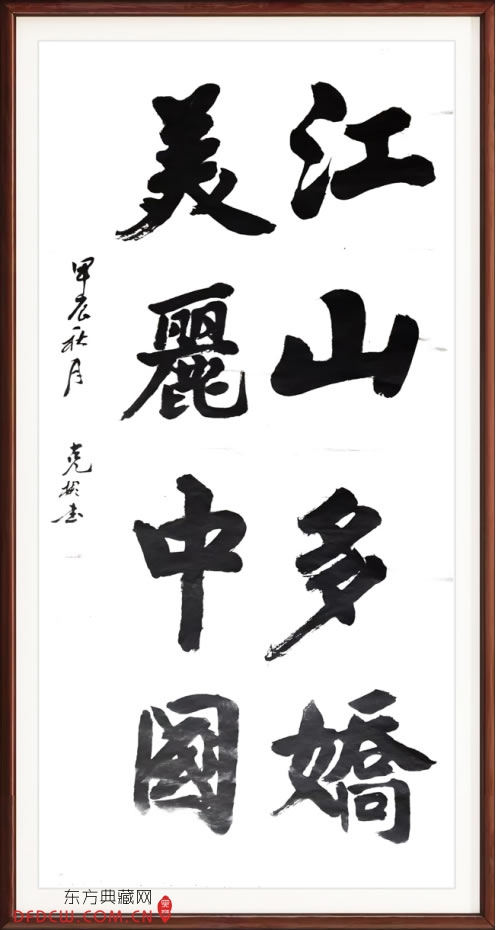 江山多嬌
美麗中國
甲辰秋月 堯彬書
东方典藏网
DFDCW.COM.CN